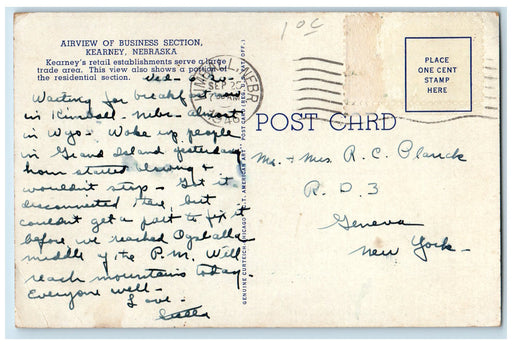 10¢
AIRVIEW OF BUSINESS SECTION,
KEARNEY, NEBRASKA
Kearney's retail establishments serve a large
trade area. This view also shows a portion of
the residential section.
Wed-
Waiting for breakfast
in Kimball - Nebr - almost
in Wyo - Woke up people
in Grand Island yesterday
horn started blowing &
wouldn't stop - Got it
disconnected there, but
couldn't get a part to fix it
before we reached Ogallala
middle of the P.M. Will
reach mountains today.
Everyone well -
Love -
KIMBALL, NEBR
SEP 25
AM
PLACE
ONE CENT
STAMP
HERE
POST CARD
Mr. + Mrs. R. C.
R. D. 3
Geneva
New York -
GENUINE CURTEICH-CHICAGO "C.T. AMERICAN ART" POST CARD (REG. U.S. PAT. OFF.)